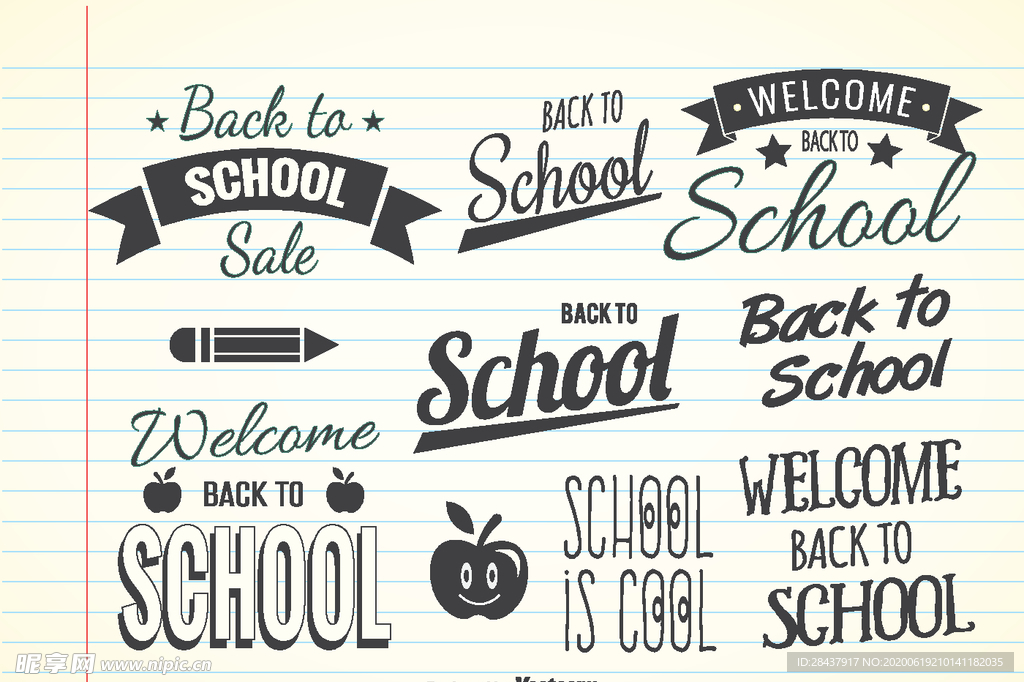 Back to
SCHOOL
Sale
BACK TO
School
WELCOME
BACK TO
School
BACK TO
School
Back to
School
Welcome
BACK TO
SCHOOL
SCHOOL
iS COOL
WELCOME
BACK TO
SCHOOL
昵享网 www.nipic.cn
ID:28437917 NO:20200619210141182035